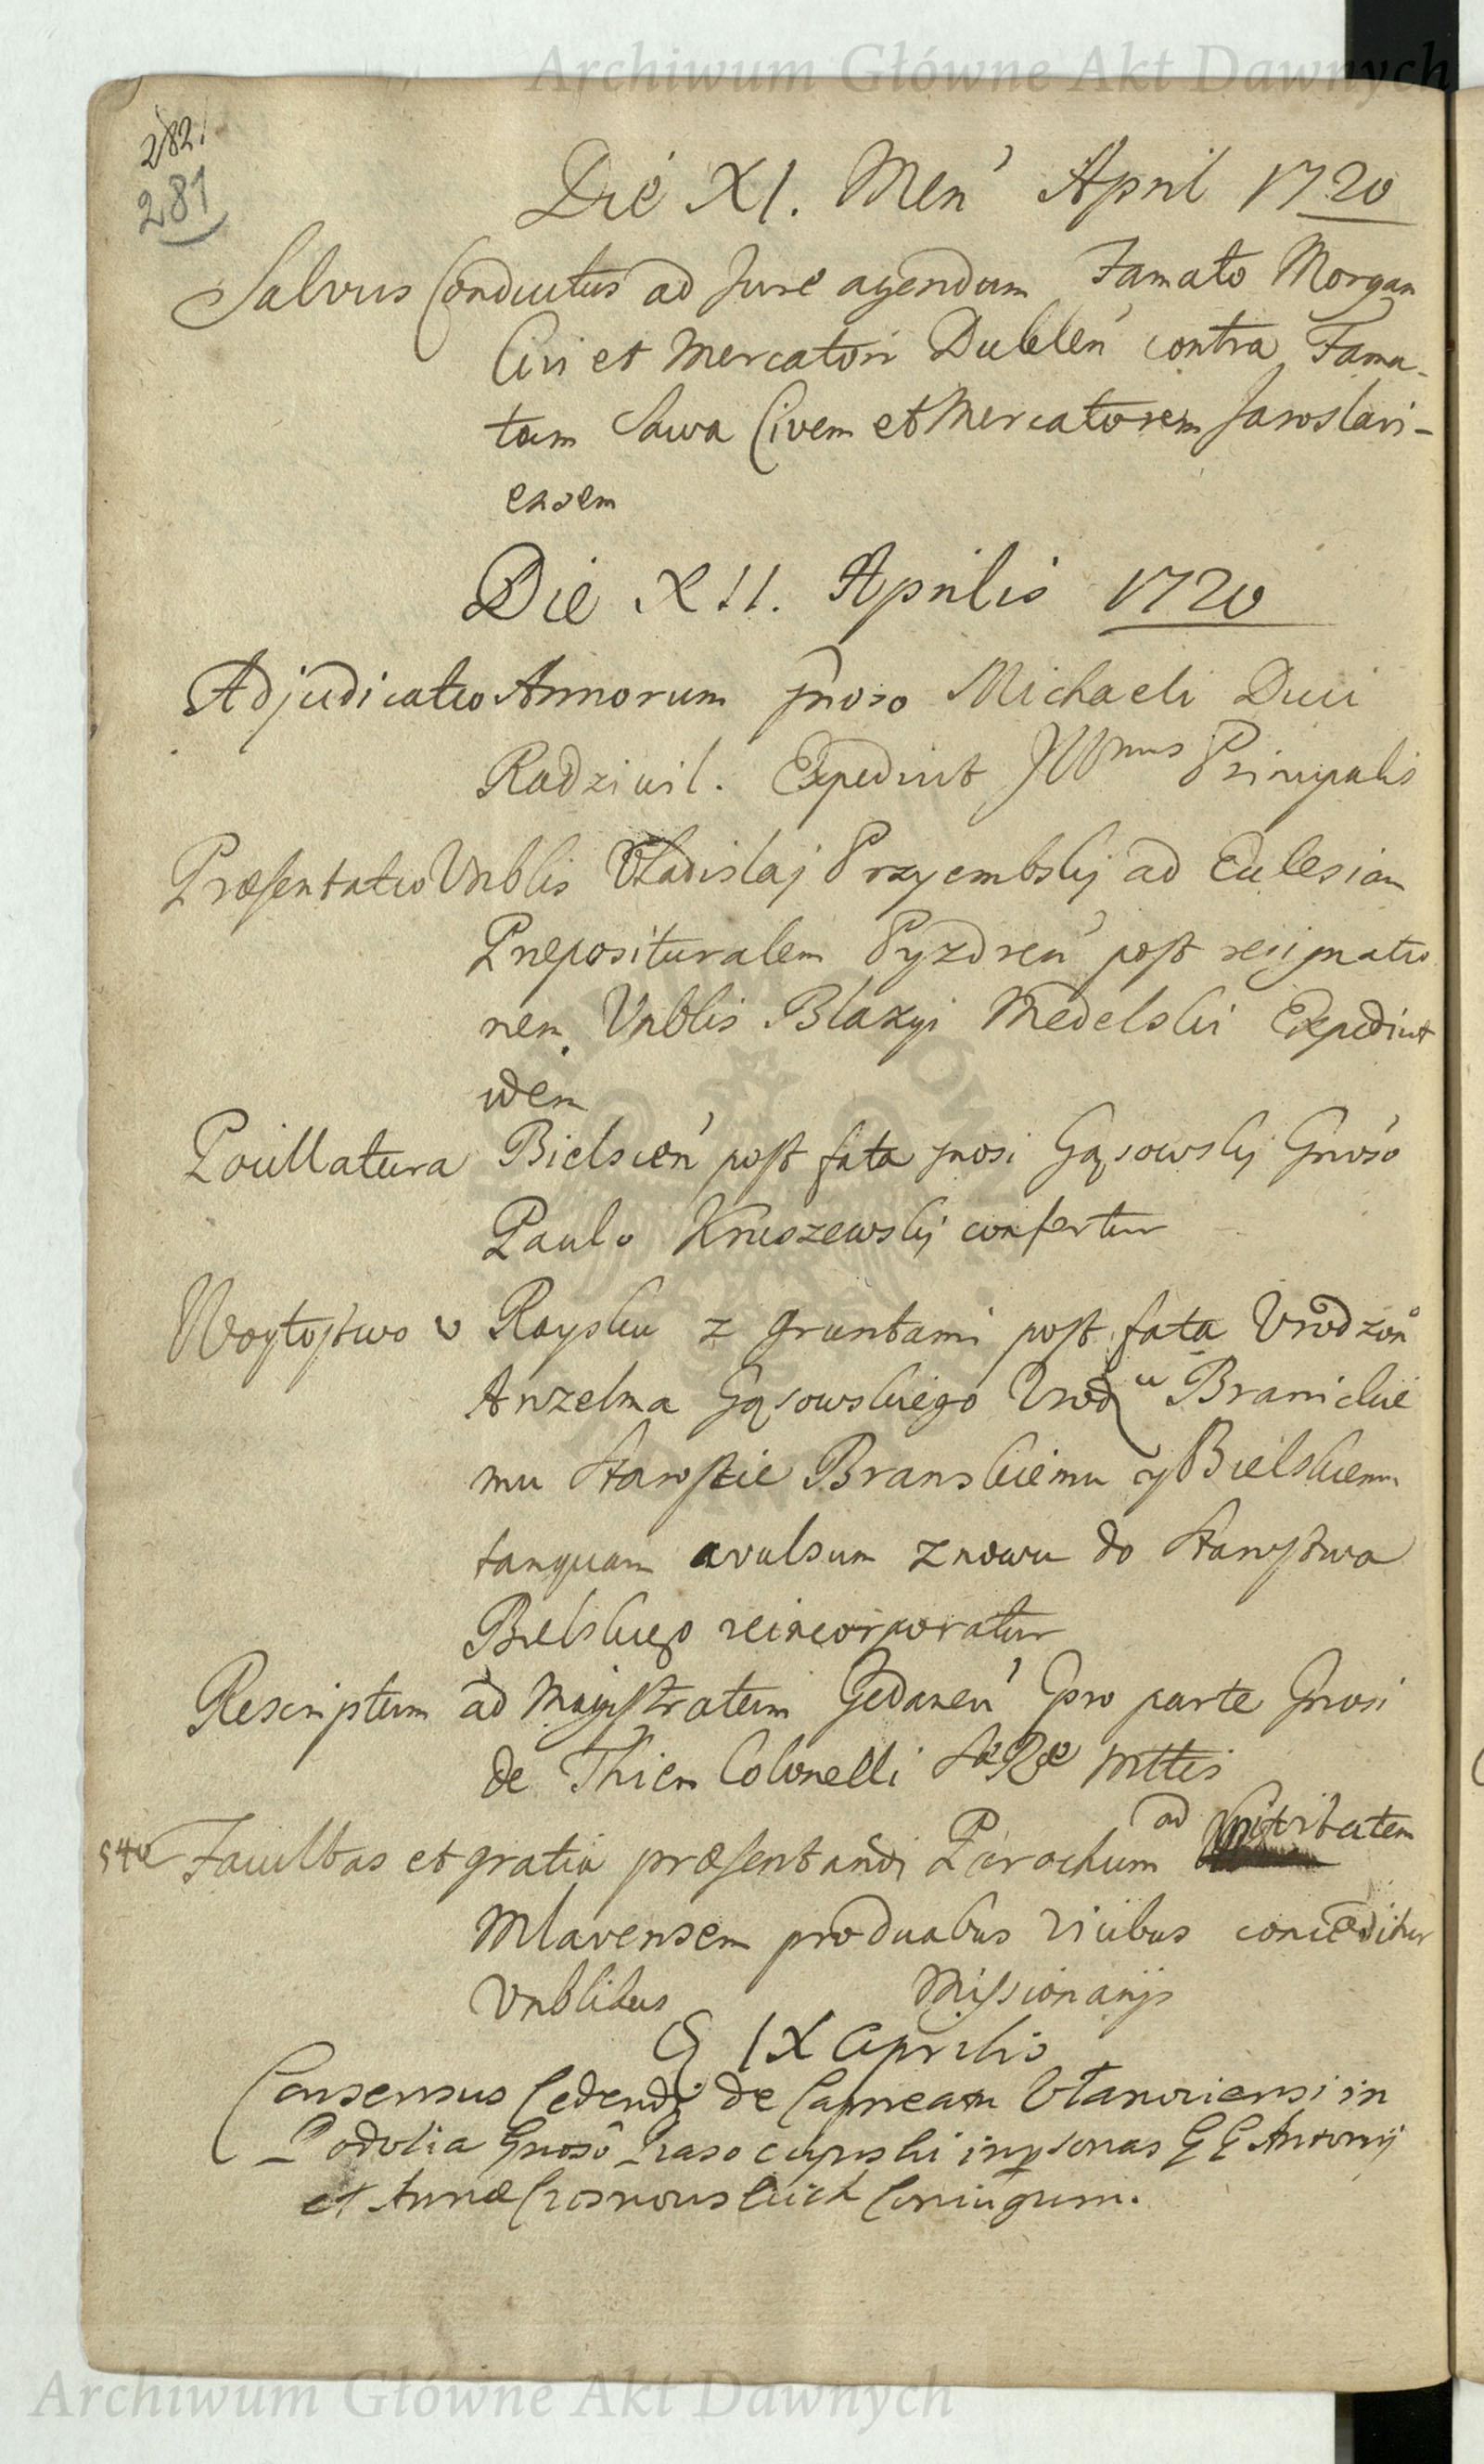 Archiwum Główne Akt Dawnych
282.
281
Die XI. Men' April 1720
Salvus Conductus ad Jure agendum Famato Morgan
Civi et Mercatori Dublen' contra Fama-
tum Sawa Civem et Mercatorem Jaroslavi-
ensem
Die XII. Aprilis 1720
Adjudicatio Annorum Gnoso Michaeli Duci
Radziwil. Expedivit Illmus Principalis
Præsentatio Vnblis Vladislaj Przyembskj ad Ecclesiam
Præposituralem Pyzdren' post resignatio
nem Vnblis Blazyi Medelski Expedivit
idem
Pocillatura Bielscen' post fata Gnosi Gąsowskj Gnoso
Paulo Kruszewskj confertur
Woytostwo w Raysku z gruntami post fata Vrodzon
Anzelma Gąsowskiego Vrod Branickie
mu Staroscie Branskiemu y Bielskiemu
tanquam avulsum znowu do Starostwa
Bielskiego reincorporatur
Rescriptum ad Magistratum Gedanen' pro parte Gnosi
de Thien Colonelli SæRæ Mttis
Facultas et gratia præsentandi Parochum ad
Mlavensem pro duabus vicibus conceditur
Vnblibus Missionarijs
IX Aprilis
Consensus Cedendi de Caprean Vlanoviensi in
Podolia Gnoso in psonas GG Antonij
et Annæ Coniugum.
Archiwum Główne Akt Dawnych